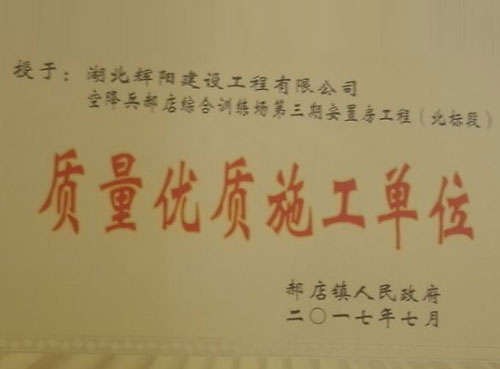 授于：湖北辉阳建设工程有限公司
空降兵郝店综合训练场第三期安置房工程（北标段）
质量优质施工单位
郝店镇人民政府
二〇一七年七月